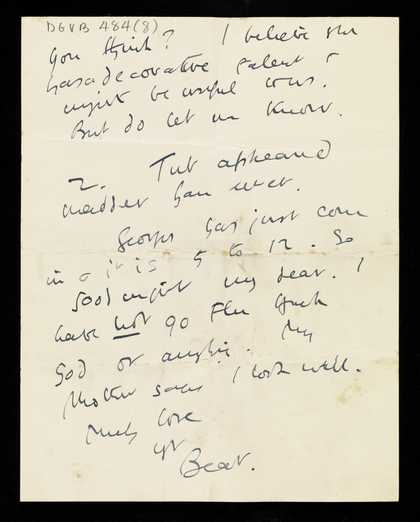 DGVB 484(8)
you think? I believe she
has a decorative talent &
might be useful
But do let me know.
2. Tut appeared
madder than ever.
George has just come
in & it is 5 to 12. So
good night my dear. I
have not go Flu thank
God or anything. My
Mother says I look well.
Much love
yr
Beat.